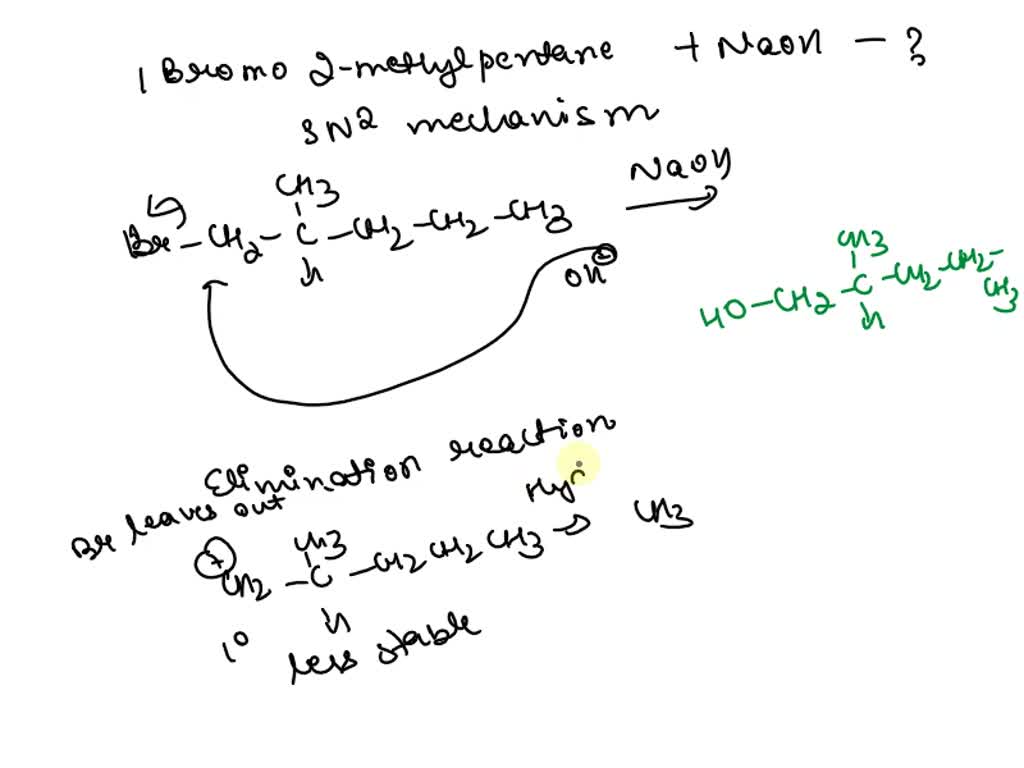 1 Bromo 2-methylpentane + NaOH - ?
SN2 mechanism
NaOH
CH3
Br-CH2-C-CH2-CH2-CH3
H
OH⊖
CH3
HO-CH2-C-CH2-CH2-
CH3
H
Elimination reaction
Br leaves out
Hyd
CH3
⊕
CH2-C-CH2 CH2 CH3 → CH3
H
1° less stable